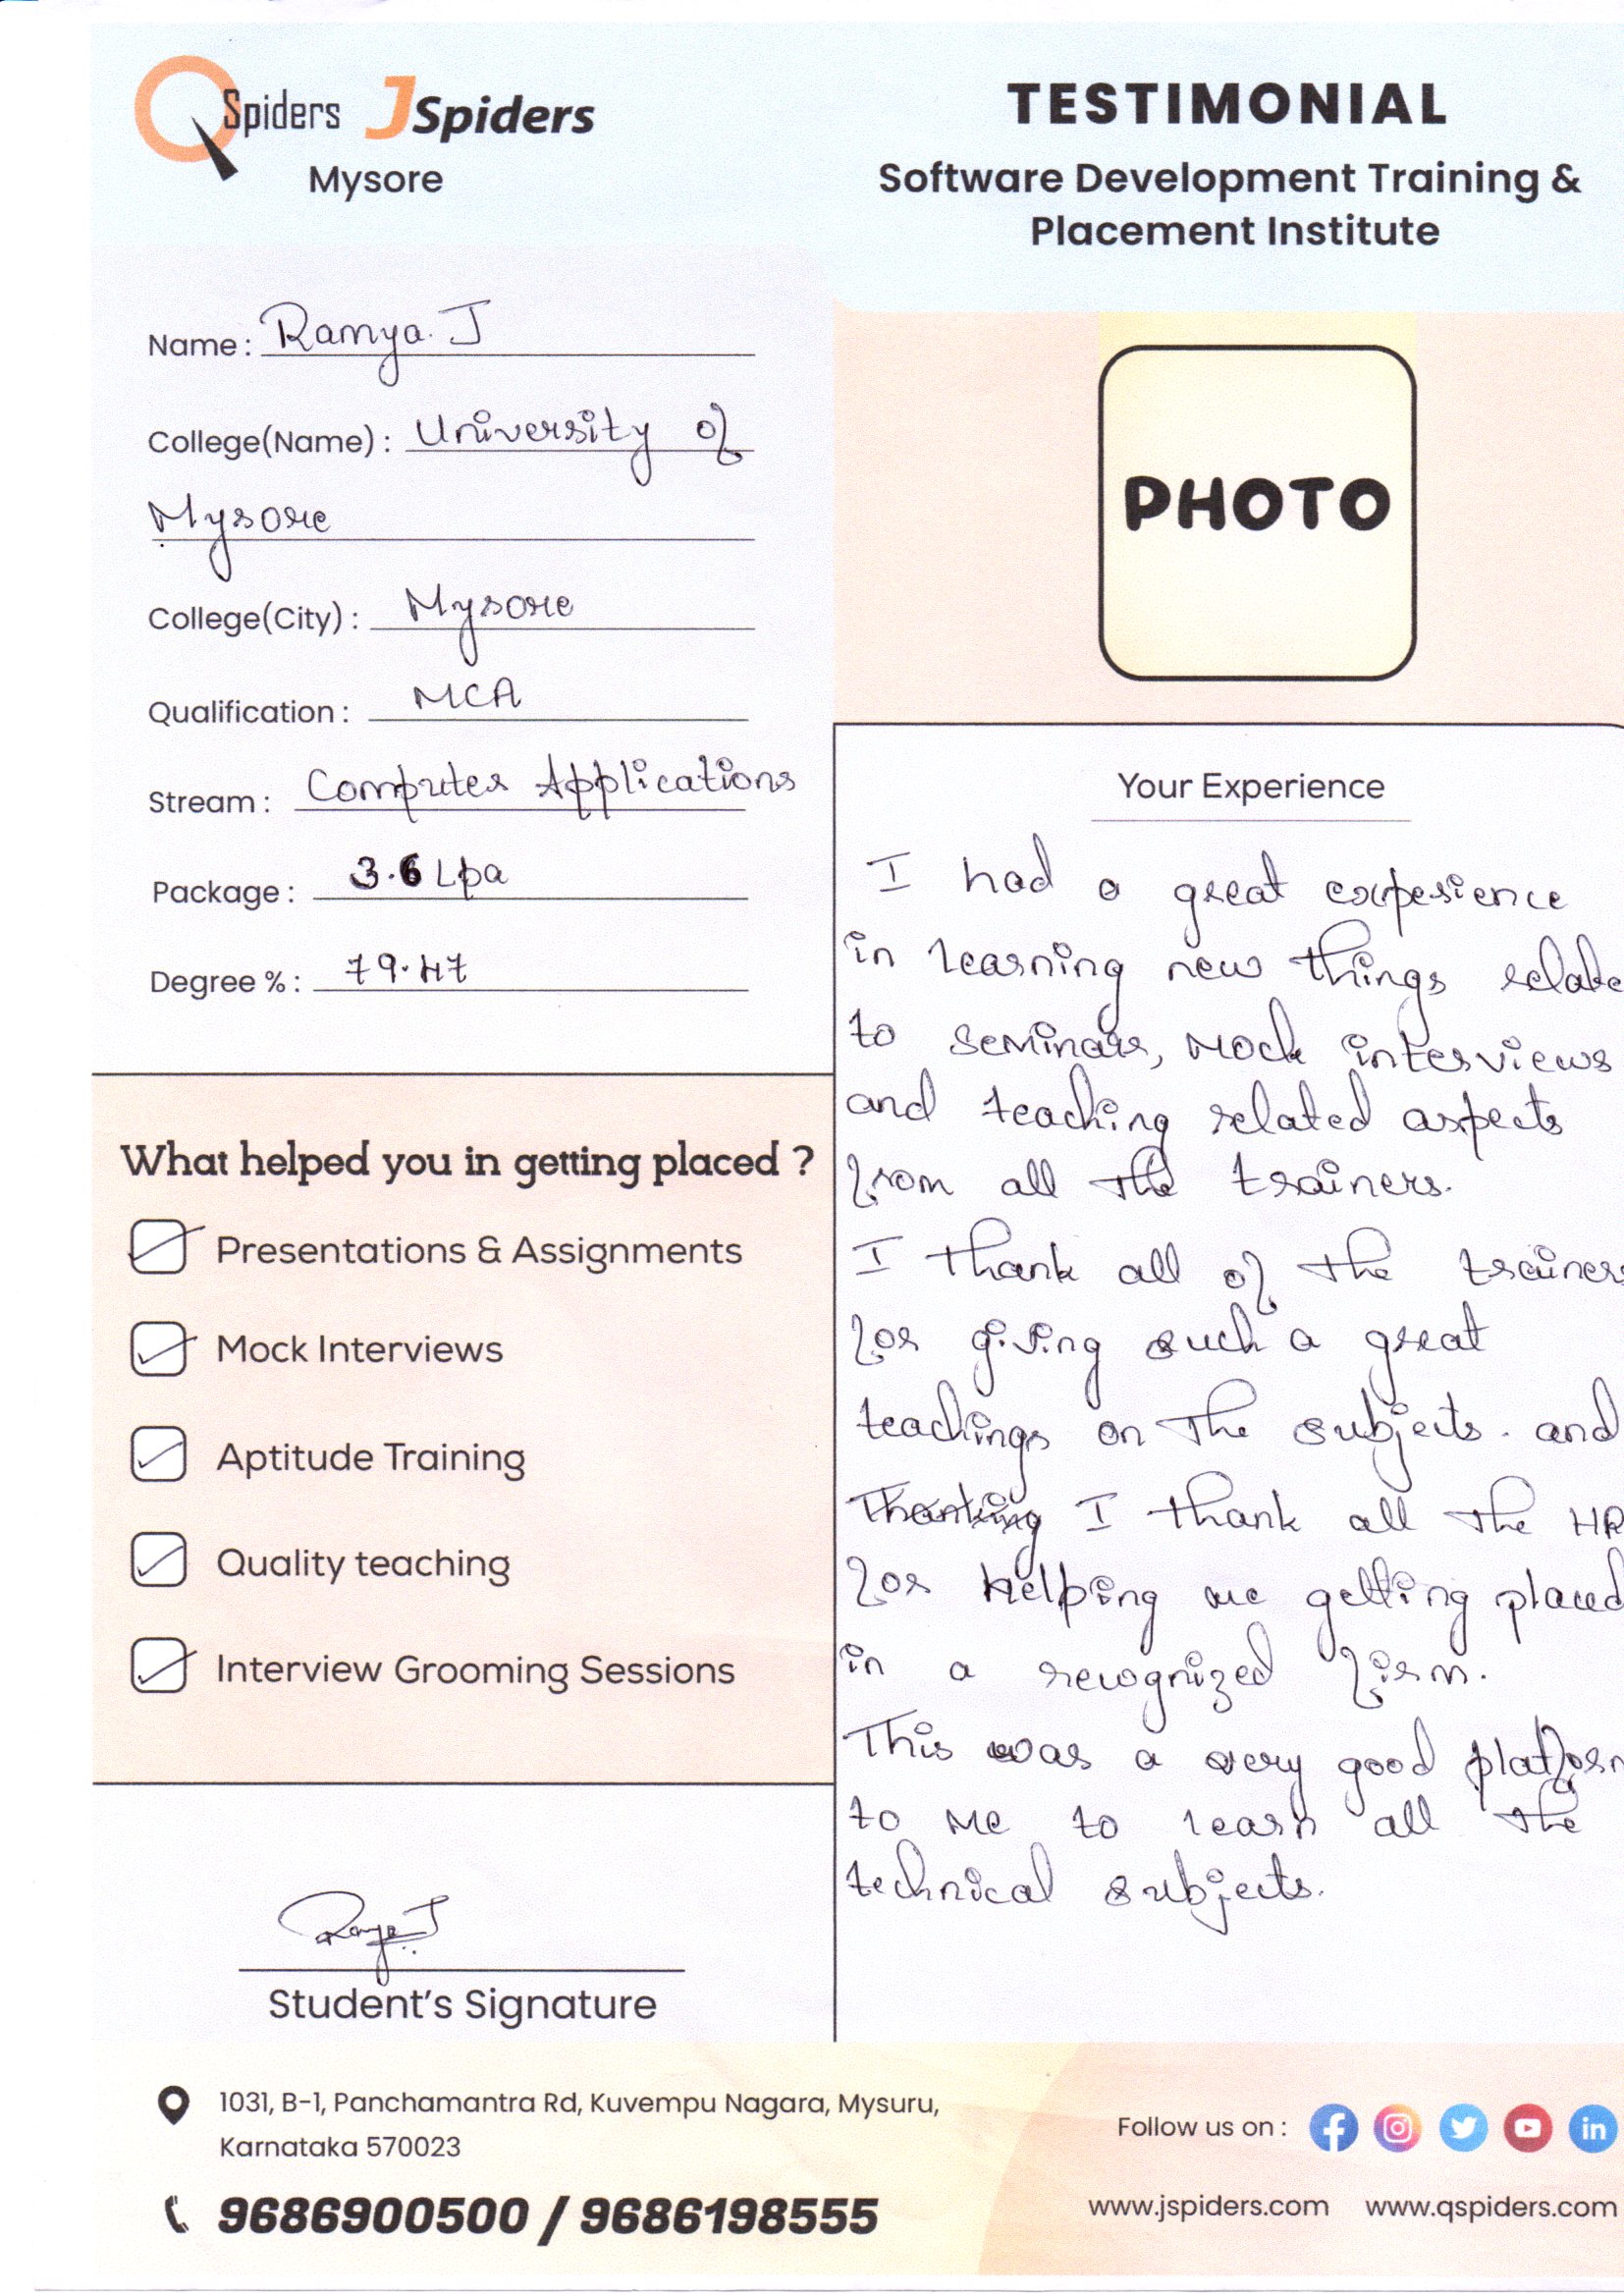 QSpiders JSpiders
Mysore
TESTIMONIAL
Software Development Training &
Placement Institute
Name : Ramya. J
College(Name) : University of
Mysore
College(City) : Mysore
Qualification : MCA
Stream : Computer Applications
Package : 3.6 Lpa
Degree % : 79.47
PHOTO
What helped you in getting placed ?
Presentations & Assignments
Mock Interviews
Aptitude Training
Quality teaching
Interview Grooming Sessions
Ramya J
Student's Signature
Your Experience
I had a great experience
in learning new things relate
to seminars, Mock interviews
and teaching related aspects
from all the trainers.
I thank all of the trainers
for giving such a great
teachings on the subjects. and
Thanking I thank all the HR
for helping me getting placed
in a recognized firm.
This was a very good platform
to me to learn all the
technical subjects.
1031, B-1, Panchamantra Rd, Kuvempu Nagara, Mysuru,
Karnataka 570023
9686900500 / 9686198555
Follow us on :
www.jspiders.com www.qspiders.com